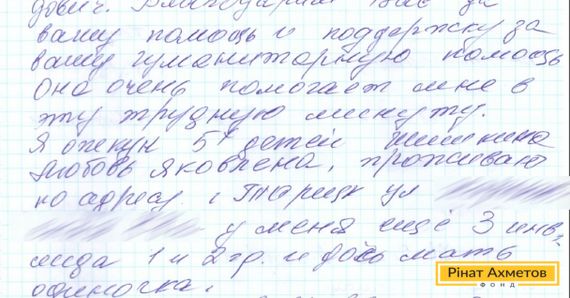 дович. Благодарим Вас за
вашу помощь и поддержку за
вашу гуманитарную помощь
Она очень помогает мне в
эту трудную минуту.
Я опекун 5 детей Шишкина
Любовь Яковлена, проживаю
по адресу г Торицк ул
у меня ещё 3 инв-
лида 1 и 2 гр. и дочь мать
одиночка.
Рінат Ахметов
ФОНД